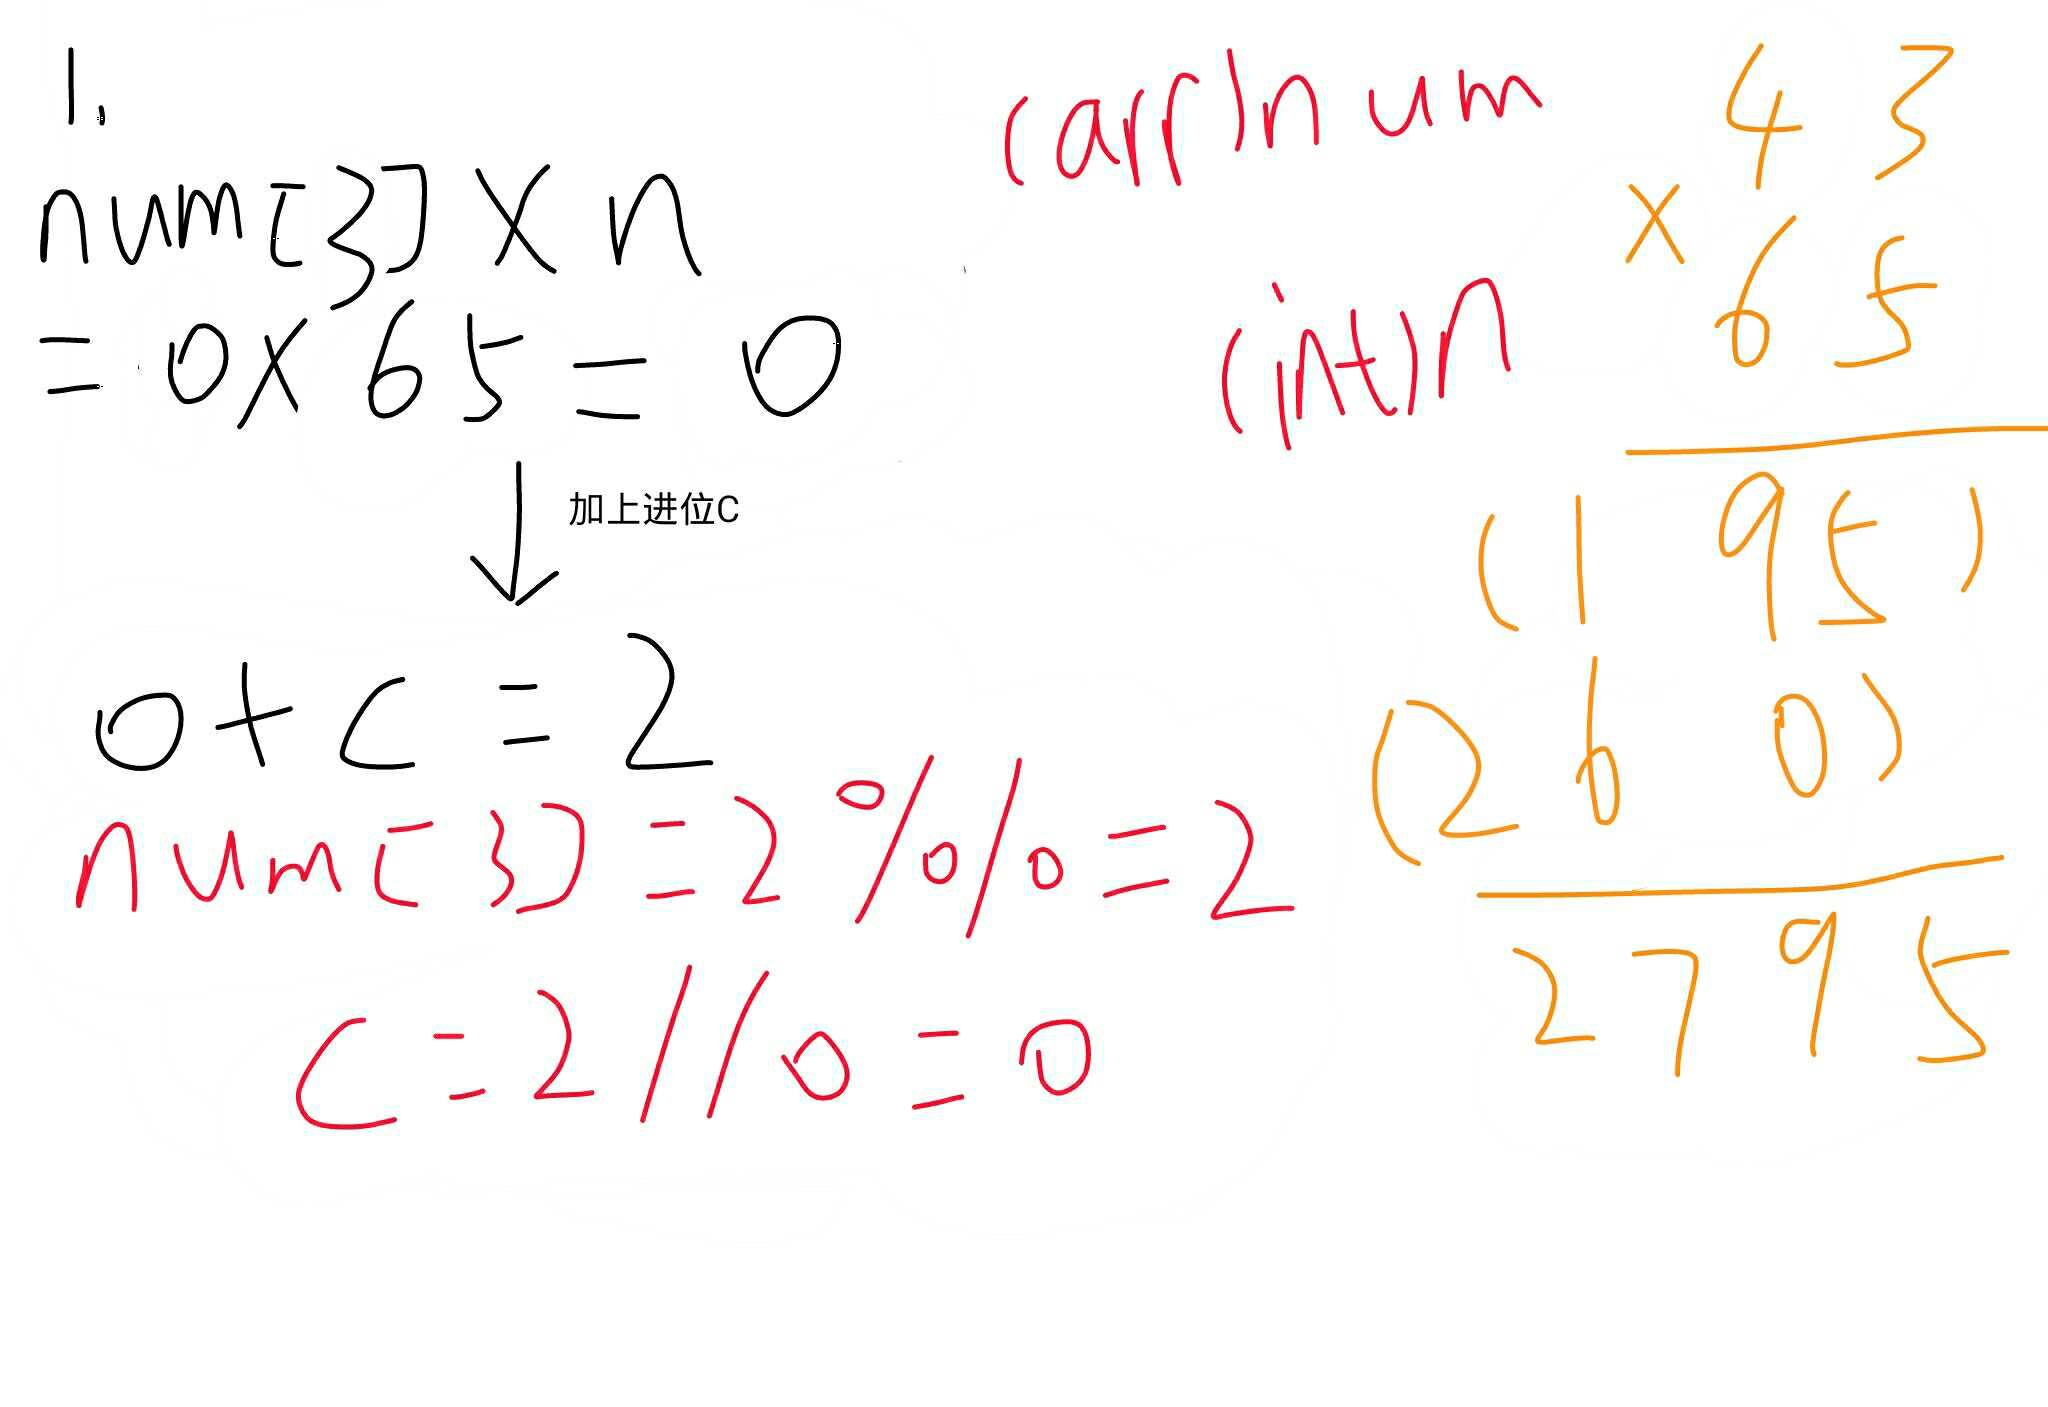 1.
num[3]×n
=0×65=0
加上进位C
0+C=2
num[3]=2%10=2
C=2/10=0
(arr)num
(int)n
43
×
65
(195)
(260)
2795